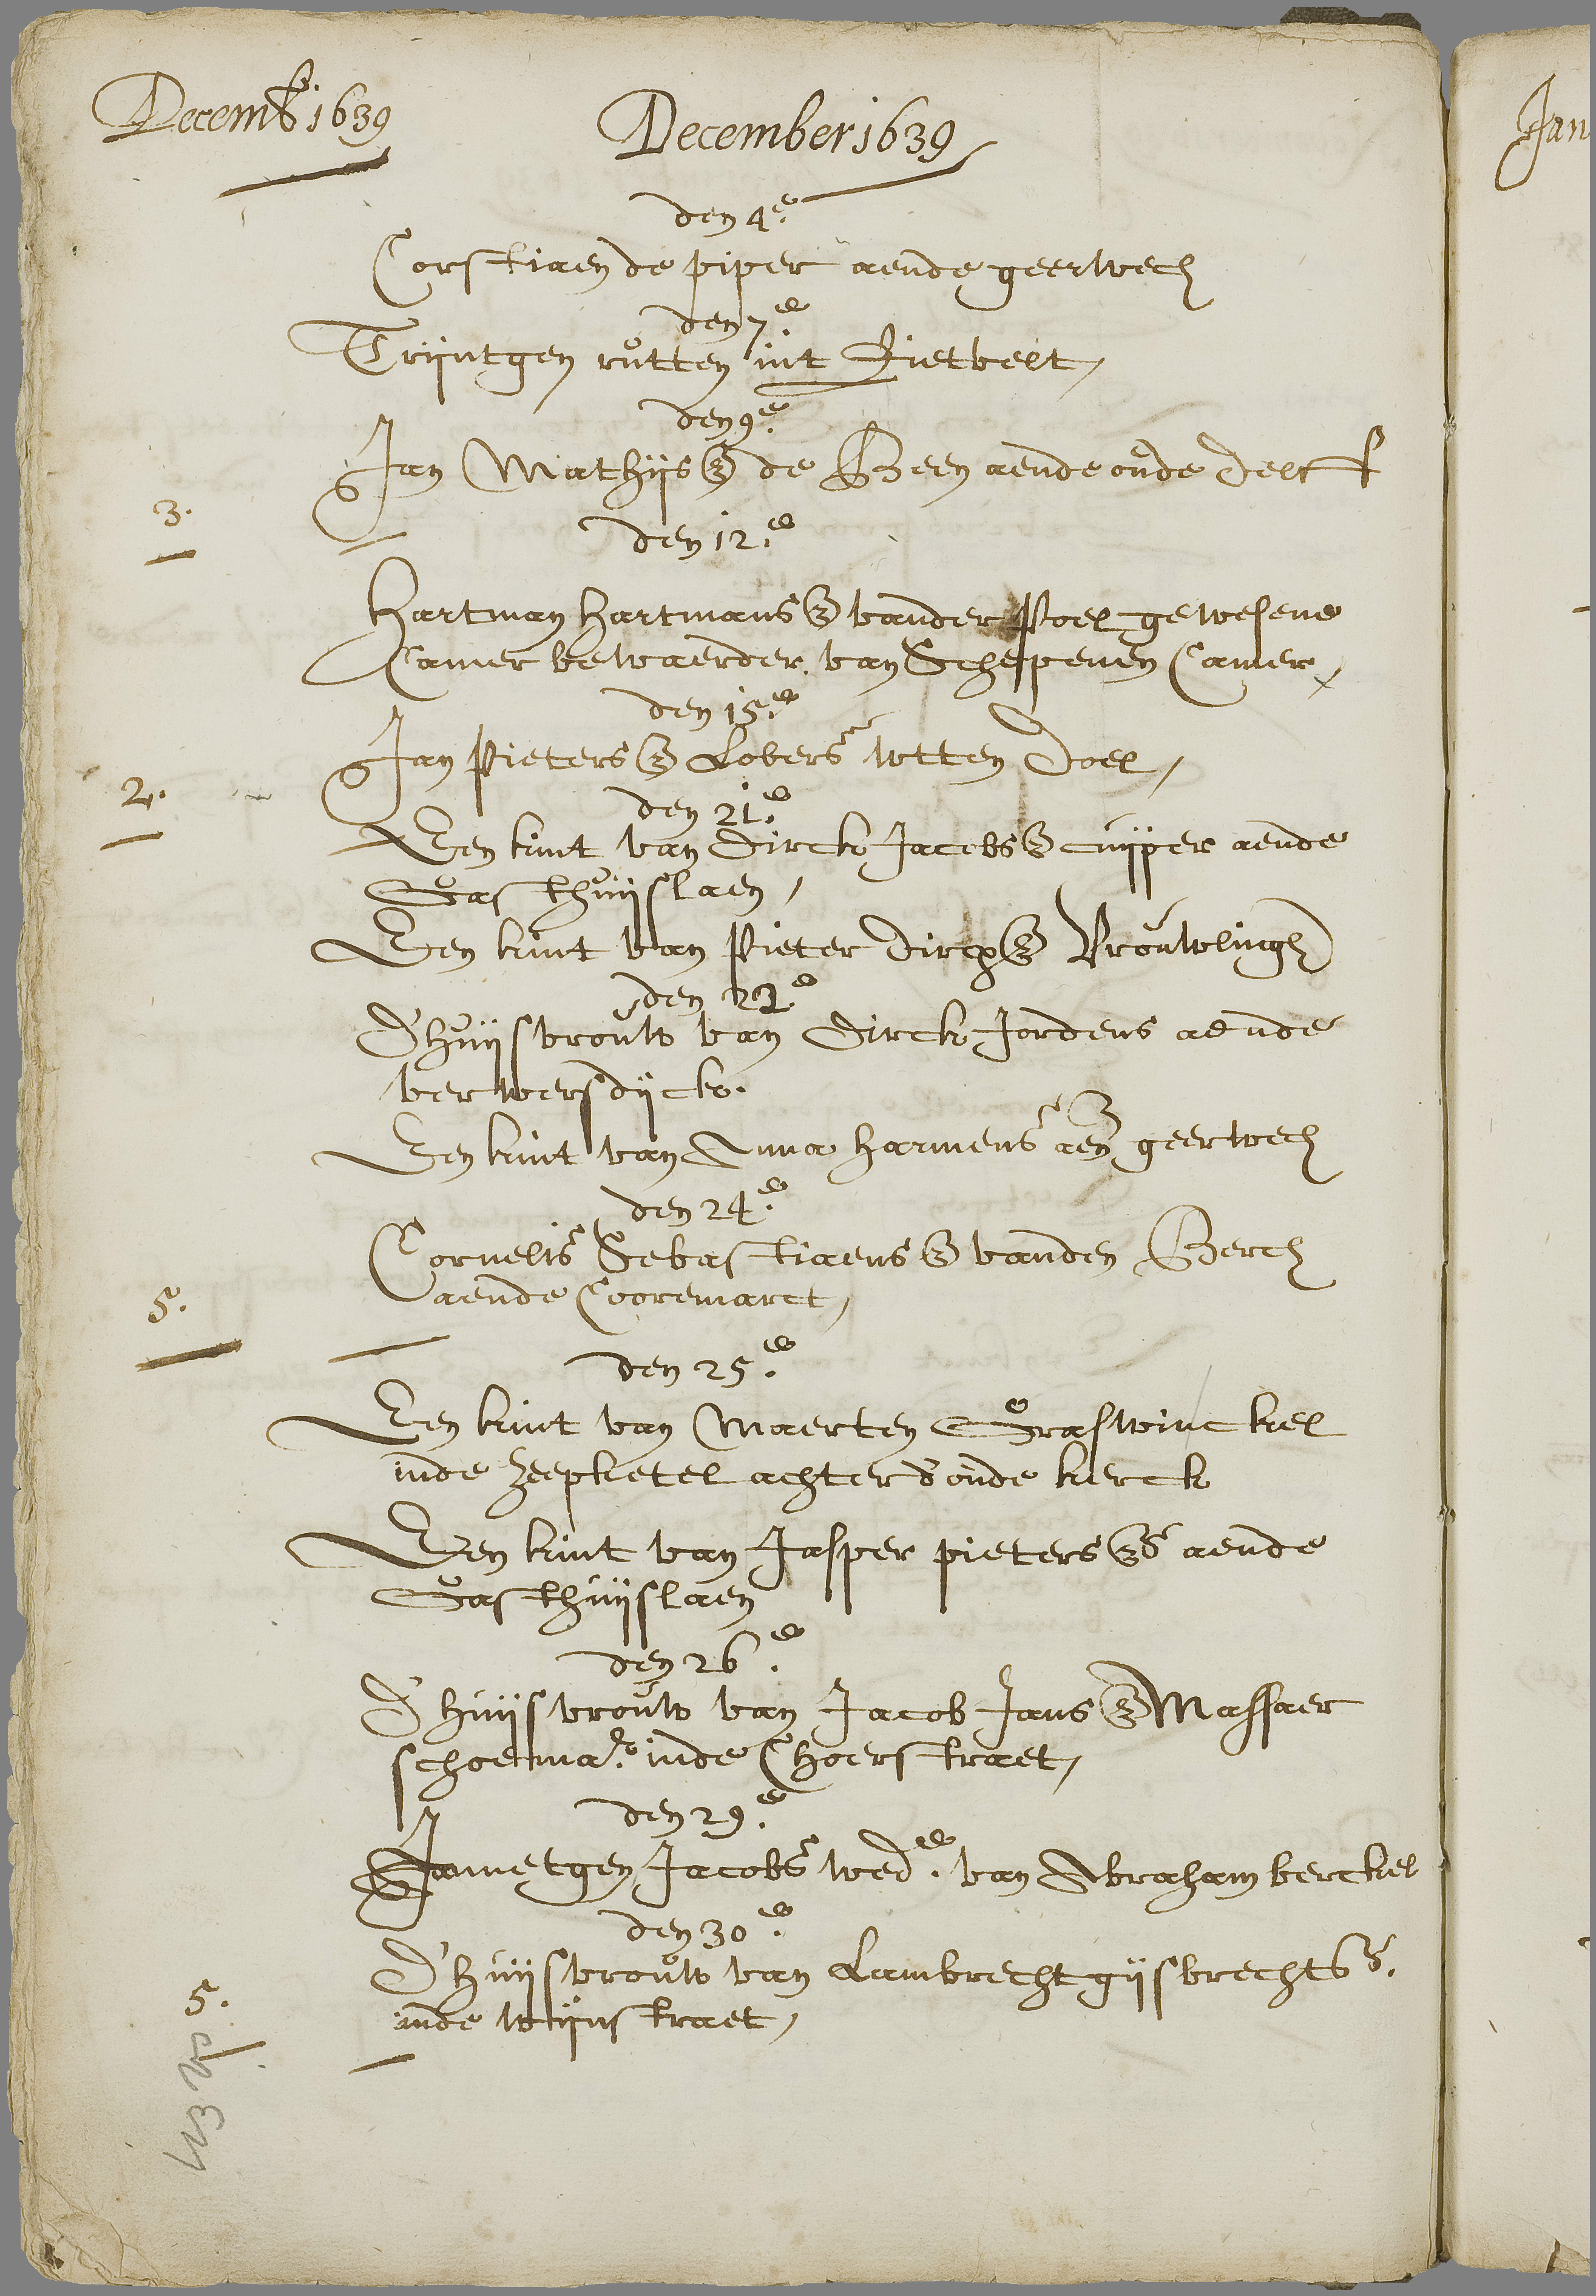 Decemb 1639
December 1639
den 4e.
Corstiaen de piper aende geerwech
den 7e.
Trijntgen rutten int Rietvelt,
den 9e.
Jan Mathijsz de Been aende oude delff
3.
den 12e.
Hartman Hartmansz vander Poel gewesene
Camer bewaerder van Schepenen Camer,
den 15e.
Jan Pietersz Lovers wtten doel,
2.
den 21e.
Een kint van Dirck Jacobsz cuijper aende
Gasthuijslaen,
Een kint van Pieter Dircxz Vrouwlingh
den 22e.
D'huijsvrouw van Dirck Jordens aende
verwersdijck.
Een kint van Anna Harmens aen geerwech
den 24e.
Cornelis Sebastiaensz vanden Berch
aende Cooremarct,
5.
den 25e.
Een kint van Maerten Graswinckel
inde zeepketel achter d'oude kerck
Een kint van Jasper pietersz aende
Gasthuijslaen
den 26e.
D'huijsvrouw van Jacob Jansz Massaer
schoenmar. inde Choorstraet,
den 29e.
Jannetgen Jacobs wede. van Abraham berckel
den 30e.
D'huijsvrouw van Lambrecht gijsbrechts.
inde wijnstraet,
5.
Jan